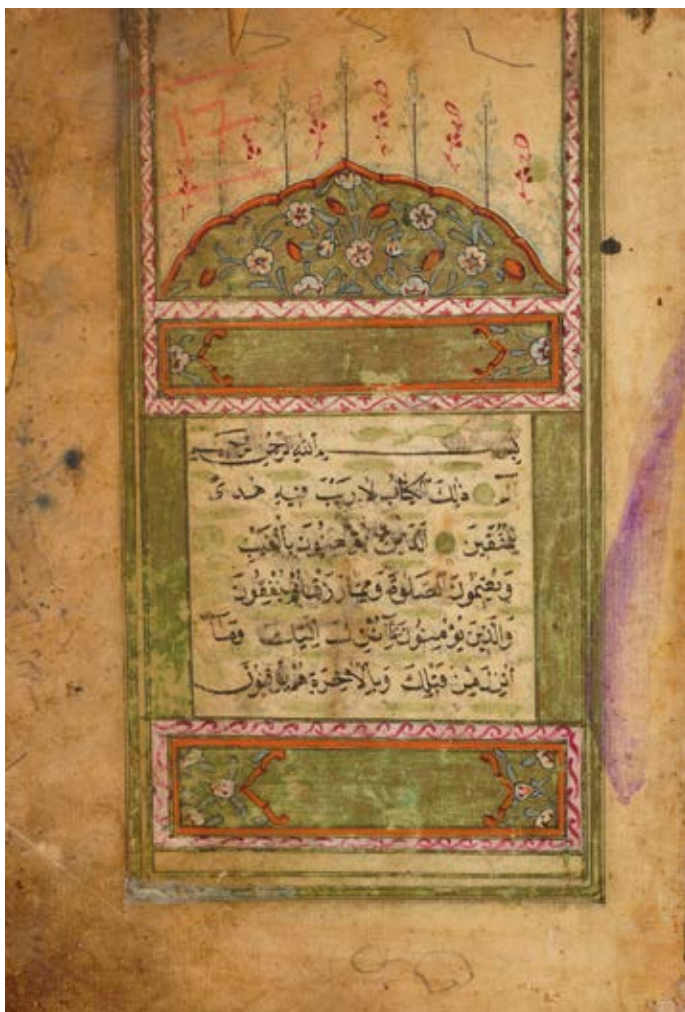 17
بِسْمِ اللهِ الرَّحْمٰنِ الرَّحِيمِ
الٓمٓ ذٰلِكَ الْكِتَابُ لَا رَيْبَ فِيهِ هُدًى
لِلْمُتَّقِينَ الَّذِينَ يُؤْمِنُونَ بِالْغَيْبِ
وَيُقِيمُونَ الصَّلٰوةَ وَمِمَّا رَزَقْنَاهُمْ يُنْفِقُونَ
وَالَّذِينَ يُؤْمِنُونَ بِمَٓا اُنْزِلَ اِلَيْكَ وَمَٓا
اُنْزِلَ مِنْ قَبْلِكَ وَبِالْاٰخِرَةِ هُمْ يُوقِنُونَ